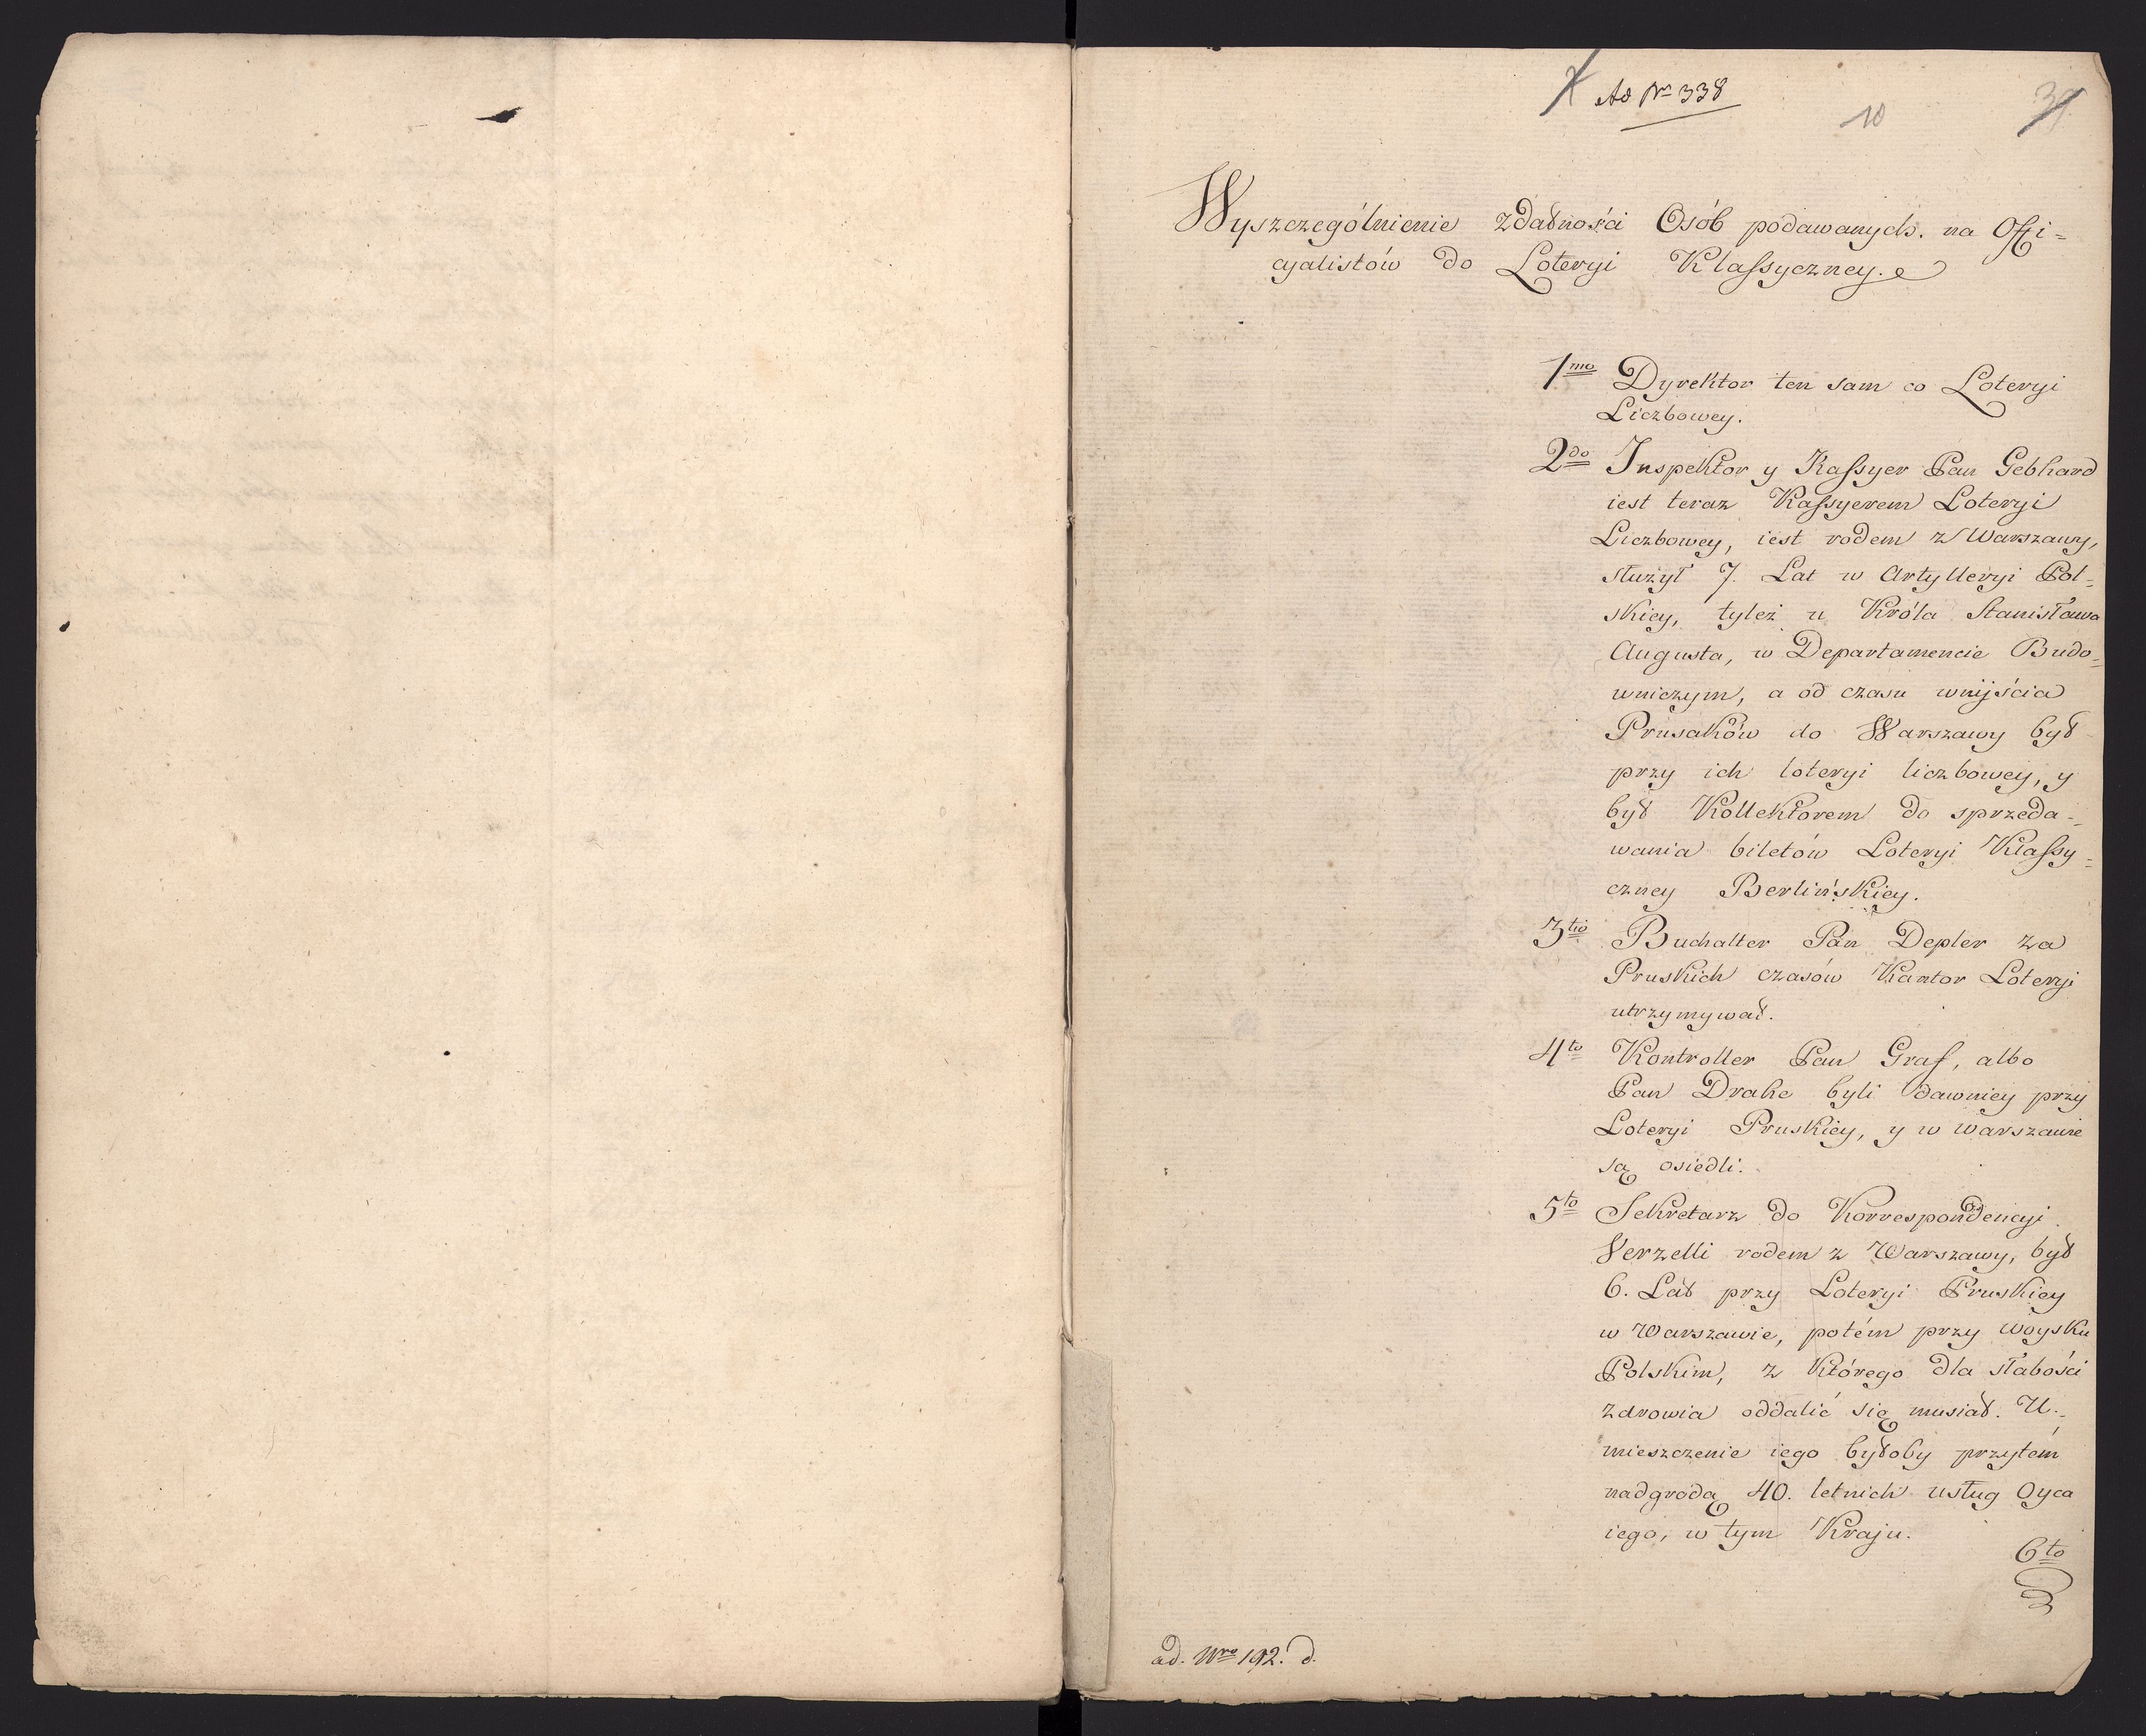 Ad Nro 338
10
39
Wyszczególnienie zdatności Osób podawanych. na Offi=
cyalistów do Loteryi Klassyczney.
1mo Dyrektor ten sam co Loteryi
Liczbowey.
2do Inspektor y Kassyer Pan Gebhard
iest teraz Kassyerem Loteryi
Liczbowey, iest rodem z Warszawy,
służył 7. Lat w Artylleryi Pol=
skiey, tyleż u Króla Stanisława
Augusta, w Departamencie Budo=
wniczym, a od czasu wnijścia
Prusaków do Warszawy był
przy ich loteryi liczbowey, y
był Kollektorem do sprzeda=
wania biletów Loteryi Klassy=
czney Berlińskiey.
3tio Buchalter Pan Depler za
Pruskich czasów Kantor Loteryi
utrzymywał.
4to Kontroller Pan Graf, albo
Pan Drake byli dawniey przy
Loteryi Pruskiey, y w Warszawie
są osiedli.
5to Sekretarz do Korrespondencyi
Verzelli rodem z Warszawy, był
6. Lat przy Loteryi Pruskiey
w Warszawie, potém przy woysku
Polskim, z którego dla słabości
zdrowia oddalić się musiał. U=
mieszczenie iego byłoby przytém
nadgrodą 40. letnich usług Oyca
iego, w tym Kraju.
6to
ad. Nro 192. d.